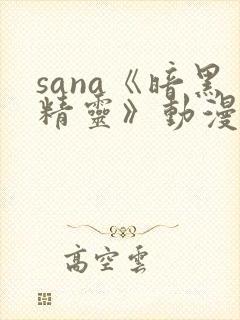 sana《暗黑
精靈》動漫
高空雲